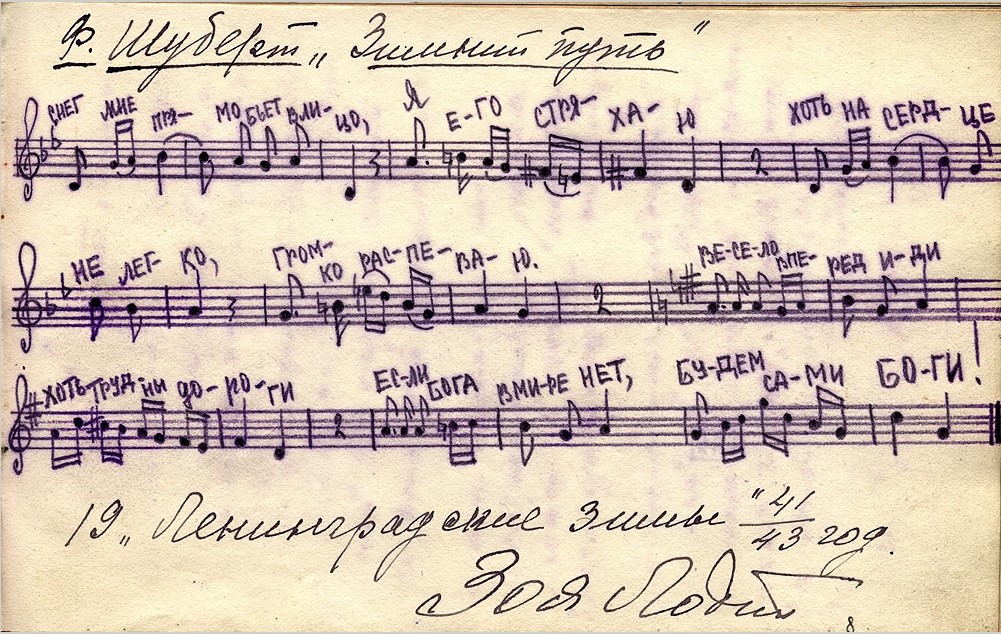 Ф. Шуберт „Зимний путь"
СНЕГ МНЕ ПРЯ- МО БЬЕТ В ЛИ- ЦО, Я Е-ГО СТРЯ- ХА- Ю ХОТЬ НА СЕРД- ЦЕ
НЕ ЛЕГ- КО, ГРОМ- КО РАС-ПЕ- ВА- Ю. ВЕ-СЕ-ЛО ВПЕ- РЕД И-ДИ
ХОТЬ ТРУД-НЫ ДО- РО- ГИ ЕС-ЛИ БОГА В МИ-РЕ НЕТ, БУ-ДЕМ СА-МИ БО-ГИ!
19 „Ленинградские зимы" 41/43 год.
Зоя Лодий
8